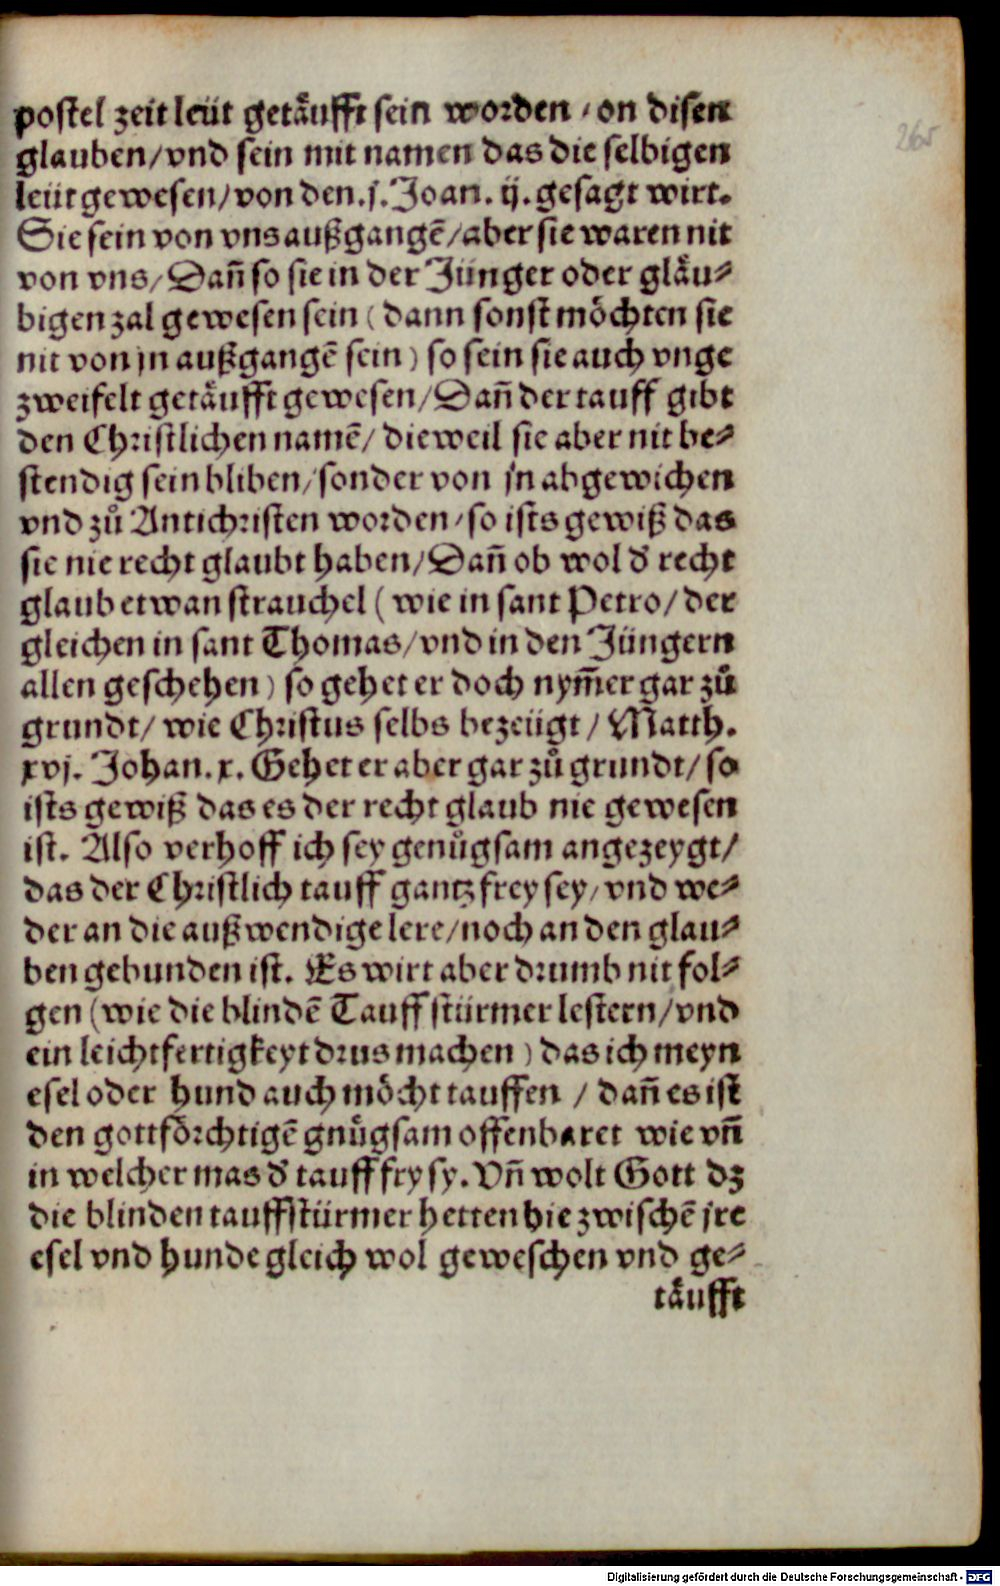 postel zeit leüt getäufft sein worden / on disen
glauben / vnd sein mit namen das die selbigen
leüt gewesen / von den .j. Joan. ij. gesagt wirt.
Sie sein von vns außgangē / aber sie waren nit
von vns / Dañ so sie in der Jünger oder gläu⸗
bigen zal gewesen sein ( dann sonst möchten sie
nit von jn außgangē sein ) so sein sie auch vnge
zweifelt getäufft gewesen / Dañ der tauff gibt
den Christlichen namē / dieweil sie aber nit be⸗
stendig sein bliben / sonder von jn abgewichen
vnd zů Antichristen worden / so ists gewiß das
sie nie recht glaubt haben / Dañ ob wol d' recht
glaub etwan strauchel ( wie in sant Petro / der
gleichen in sant Thomas / vnd in den Jüngern
allen geschehen ) so gehet er doch nym̄er gar zů
grundt / wie Christus selbs bezeügt / Matth.
xvj. Johan. x. Gehet er aber gar zů grundt / so
ists gewiß das es der recht glaub nie gewesen
ist. Also verhoff ich sey genůgsam angezeygt /
das der Christlich tauff gantz frey sey / vnd we⸗
der an die außwendige lere / noch an den glau⸗
ben gebunden ist. Es wirt aber drumb nit fol⸗
gen ( wie die blindē Tauffstürmer lestern / vnd
ein leichtfertigkeyt drus machen ) das ich meyn
esel oder hund auch möcht tauffen / dañ es ist
den gottförchtigē gnůgsam offenbaret wie vñ
in welcher mas d' tauff fry sy. Vñ wolt Gott dz
die blinden tauffstürmer hetten hie zwischē jre
esel vnd hunde gleich wol geweschen vnd ge⸗
täufft
265
Digitalisierung gefördert durch die Deutsche Forschungsgemeinschaft - DFG